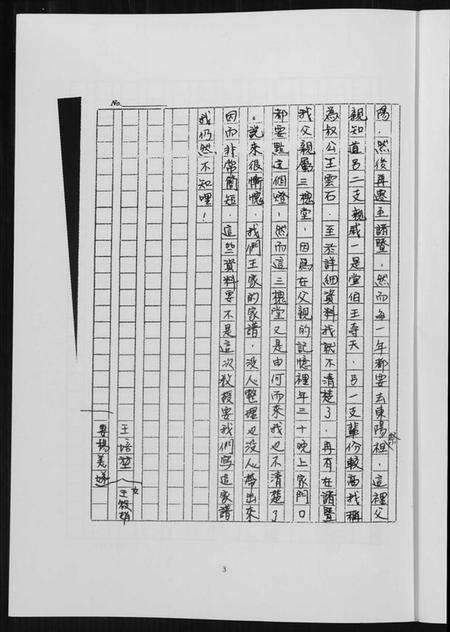 No.
陽．然後再遷至諸暨，然而每一年都要去東陽祭祖，這裡父
親知道另二支親戚一是堂伯王存天，另一支輩份較高我稱
為叔公王雲石．至於詳細資料我就不清楚了．再有在諸暨
我父親屬三槐堂，因為在父親的記憶裡年三十晚上家門口
都要點這個燈，然而這三槐堂又是由何而來我也不清楚了
。說來很慚愧，我們王家的家譜，沒人整理也沒人帶出來
因而非常簡短．這些資料要不是這次教授要我們寫這家譜
我仍然不知哩！
王培堃
女
妻楊美
3